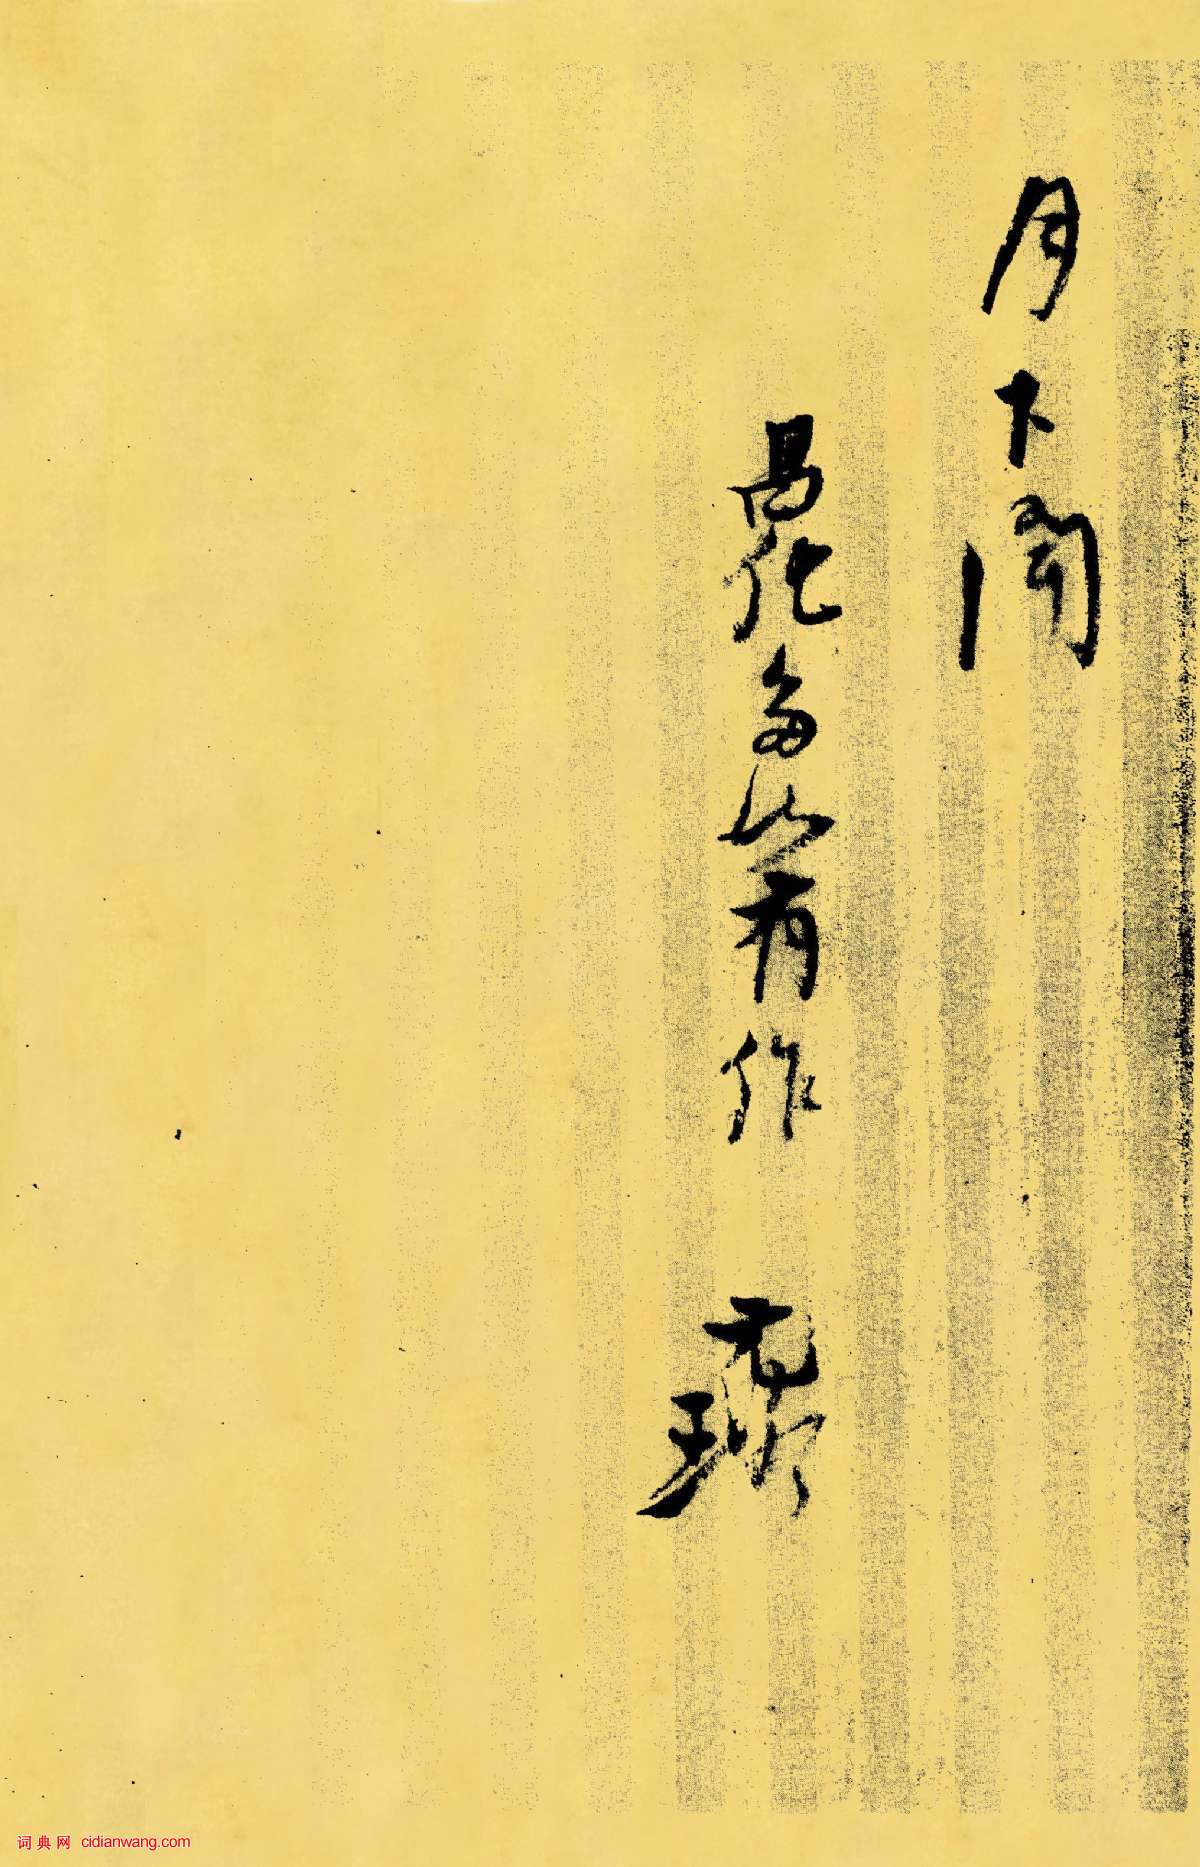 月下聞
昌化多山有作 元璐
词典网 cidianwang.com